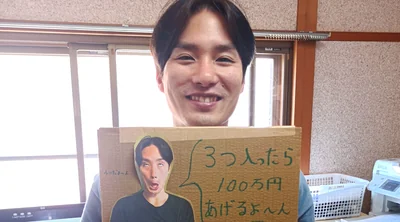 3つ入ったら
100万円
あげるよ〜ん